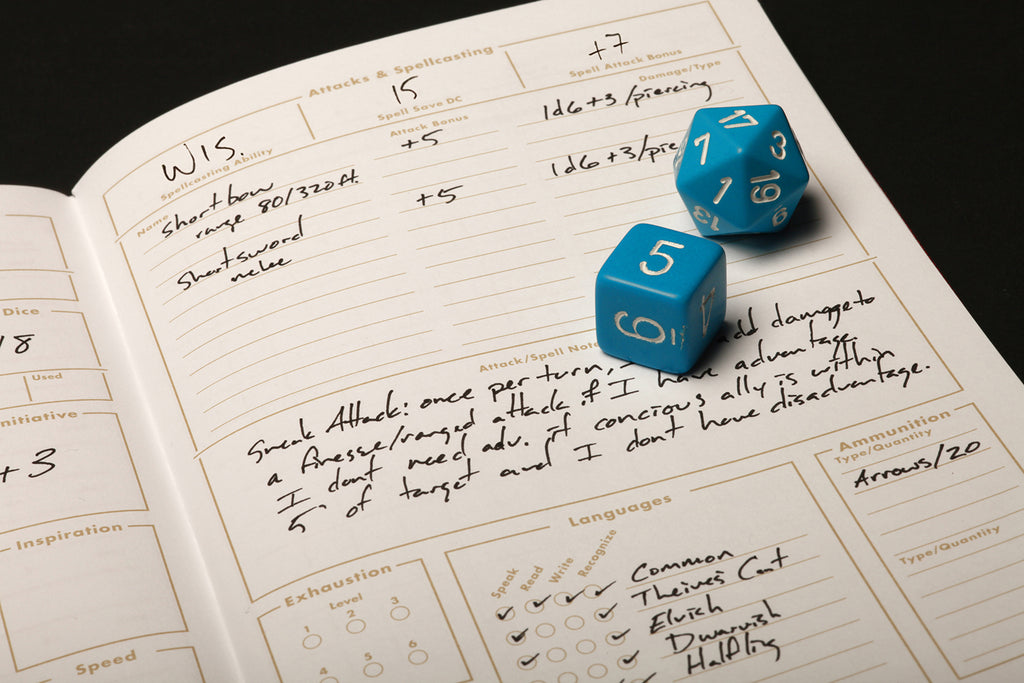 Attacks & Spellcasting
WIS.
Spellcasting Ability
15
Spell Save DC
+7
Spell Attack Bonus
Name
Attack Bonus
Damage/Type
Shortbow
range 80/320ft.
+5
1d6+3/piercing
Shortsword
melee
+5
1d6+3/pie
17
7
3
1
19
13
5
6
1
Attack/Spell Notes
Sneak Attack: once per turn, add damage to
a finesse/ranged attack if I have advantage
I dont need adv. if concious ally is within
5' of target and I dont have disadvantage.
Dice
8
Used
nitiative
+3
Inspiration
Speed
Exhaustion
Level
1
2
3
4
5
6
Languages
Speak
Read
Write
Recognize
Common
Theives Cant
Elvish
Dwarvish
Halfling
Ammunition
Type/Quantity
Arrows/20
Type/Quantity